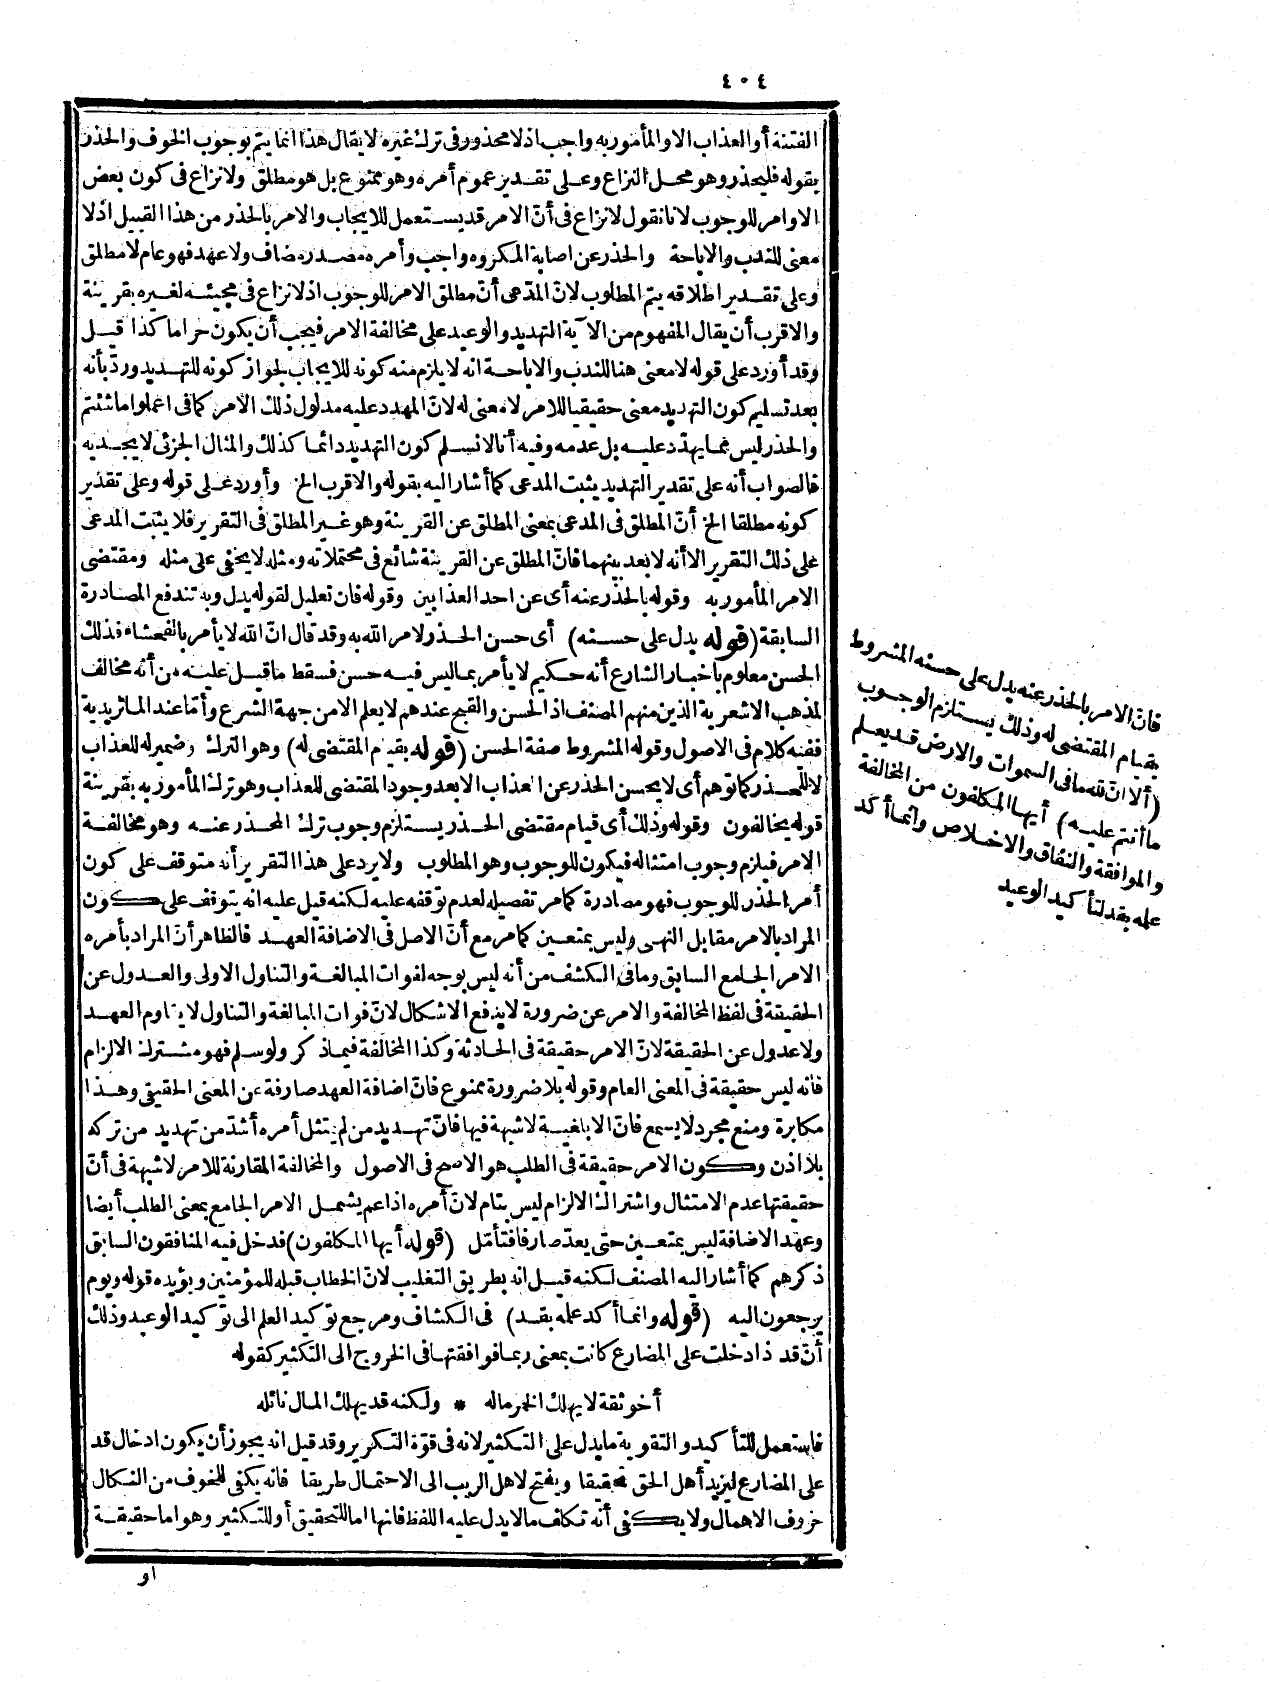 ٤٠٤
الفتنة أو العذاب الا والمأمور به واجب اذ لا محذور فى ترك غيره لا يقال هذا انما يتم بوجوب الخوف والحذر
بقوله فليحذر وهو محل النزاع وعلى تقدير عموم أمره وهو ممنوع بل هو مطلق ولا نزاع فى كون بعض
الاوامر للوجوب لانا نقول لا نزاع فى أنّ الامر قد يستعمل للايجاب والامر بالحذر من هذا القبيل اذ لا
معنى للندب والاباحة والحذر عن اصابة المكروه واجب وأمره مصدر مضاف ولا عهد فهو عام لا مطلق
وعلى تقدير اطلاقه يتم المطلوب لانّ المدّعى أنّ مطلق الامر للوجوب اذ لا نزاع فى مجيئه لغيره بقرينة
والاقرب أن يقال المفهوم من الآية التهديد والوعيد على مخالفة الامر فيجب أن يكون حراما كذا قيل
وقد أورد على قوله لا معنى هنا للندب والاباحة انه لا يلزم منه كونه للايجاب لجواز كونه للتهديد وردّ بأنه
بعد تسليم كون التهديد معنى حقيقيا للامر لا معنى له لانّ المهدد عليه مدلول ذلك الامر كما فى اعملوا ما شئتم
والحذر ليس مما يهدّد عليه بل عدمه وفيه أنا لا نسلم كون التهديد دائما كذلك والمثال الجزئى لا يجديه
فالصواب أنه على تقدير التهديد يثبت المدعى كما أشار اليه بقوله والاقرب الخ وأورد على قوله وعلى تقدير
كونه مطلقا الخ أنّ المطلق فى المدعى بمعنى المطلق عن القرينة وهو غير المطلق فى التقرير فلا يثبت المدعى
على ذلك التقرير الا أنه لا بعد بينهما فانّ المطلق عن القرينة شائع فى محتملاته ومثله لا يخفى على مثله ومقتضى
الامر المأمور به وقوله بالحذر عنه أى عن احد العذابين وقوله فان تعليل لقوله يدل وبه تندفع المصادرة
السابقة (قوله يدل على حسنه) أى حسن الحذر لامر الله به وقد قال انّ الله لا يأمر بالفحشاء فذلك
الحسن معلوم باخبار الشارع أنه حكيم لا يأمر بما ليس فيه حسن فسقط ما قيل عليه من أنه مخالف
لمذهب الاشعرية الذين منهم المصنف اذ الحسن والقبح عندهم لا يعلم الا من جهة الشرع وأمّا عند الماتريدية
ففيه كلام فى الاصول وقوله المشروط صفة الحسن (قوله بقيام المقتضى له) وهو الترك وضمير له للعذاب
لا للحذر كما توهم أى لا يحسن الحذر عن العذاب الا بعد وجود المقتضى للعذاب وهو ترك المأمور به بقرينة
قوله يخالفون وقوله وذلك أى قيام مقتضى الحذر يستلزم وجوب ترك المحذر عنه وهو مخالفة
الامر فيلزم وجوب امتثاله فيكون للوجوب وهو المطلوب ولا يرد على هذا التقرير أنه متوقف على كون
أمر الحذر للوجوب فهو مصادرة كما مر تفصيله لعدم توّقفه عليه لكنه قيل عليه انه يتوقف على كون
المراد بالامر مقابل النهى وليس بمتعين كما مر مع أنّ الاصل فى الاضافة العهد فالظاهر أنّ المراد بأمره
الامر الجامع السابق وما فى الكشف من أنه ليس بوجه لفوات المبالغة والتناول الاولى والعدول عن
الحقيقة فى لفظ المخالفة والامر عن ضرورة لا يندفع الاشكال لانّ فوات المبالغة والتناول لا يقاوم العهد
ولا عدول عن الحقيقة لانّ الامر حقيقة فى الحادثة وكذا المخالفة فيما ذكر ولو سلم فهو مشترك الالزام
فانه ليس حقيقة فى المعنى العام وقوله بلا ضرورة ممنوع فانّ اضافة العهد صارفة عن المعنى الحقيقى وهذا
مكابرة ومنع مجرد لا يسمع فانّ الابلغية لا شبهة فيها فانّ تهديد من لم يمتثل أمره أشدّ من تهديد من تركه
بلا اذن وكون الامر حقيقة فى الطلب هو الاصح فى الاصول والمخالفة المقارنة للامر لا شبهة فى أنّ
حقيقتها عدم الامتثال واشتراك الالزام ليس بتام لانّ أمره اذا عم يشمل الامر الجامع بمعنى الطلب أيضا
وعهد الاضافة ليس بمتعين حتى يعدّ صارفا فتأمّل (قوله أيها المكلفون) فدخل فيه المنافقون السابق
ذكرهم كما أشار اليه المصنف لكنه قيل انه بطريق التغليب لانّ الخطاب قبله للمؤمنين ويؤيده قوله ويوم
يرجعون اليه (قوله وانما أكد علمه بقد) فى الكشاف ومرجع توكيد العلم الى توكيد الوعيد وذلك
أنّ قد اذا دخلت على المضارع كانت بمعنى ربما فوافقتها فى الخروج الى التكثير كقوله
أخو ثقة لا يهلك الخمر ماله * ولكنه قد يهلك المال نائله
فاستعمل للتأكيد والتقوية ما يدل على التكثير لانه فى قوّة التكرير وقد قيل انه يجوز أن يكون ادخال قد
على المضارع ليزيد أهل الحق تحقيقا ويفتح لاهل الريب الى الاحتمال طريقا فانه يكفى للخوف من النكال
خروف الاهمال ولا يكفى أنه تكلف ما لا يدل عليه اللفظ فانها اما للتحقيق أو للتكثير وهو اما حقيقة
او
فانّ الامر بالحذر عنه يدل على حسنه المشروط
بقيام المقتضى له وذلك يستلزم الوجوب
(ألا انّ لله ما فى السموات والارض قد يعلم
ما أنتم عليه) أيها المكلفون من المخالفة
والموافقة والنفاق والاخلاص وانما أكد
علمه بقد لتأكيد الوعيد